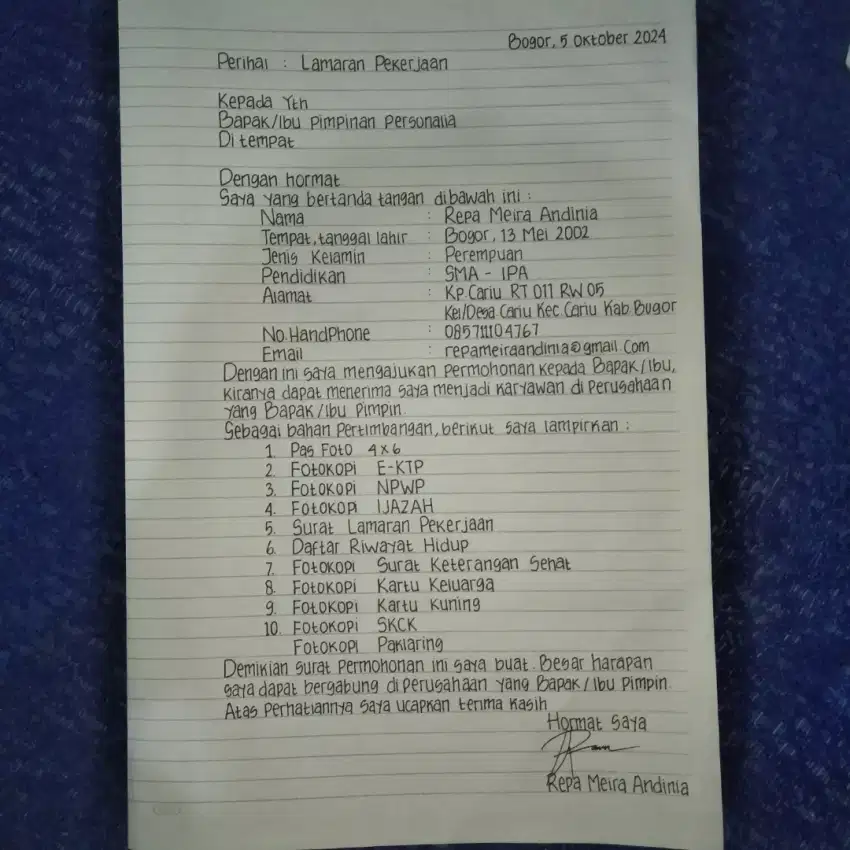 Bogor, 5 Oktober 2024
Perihal : Lamaran Pekerjaan
Kepada Yth
Bapak/Ibu Pimpinan Personalia
Di tempat
Dengan hormat
Saya yang bertanda tangan dibawah ini :
Nama : Repa Meira Andinia
Tempat, tanggal lahir : Bogor, 13 Mei 2002
Jenis Kelamin : Perempuan
Pendidikan : SMA - IPA
Alamat : Kp. Cariu RT 011 RW 05
Kel/Desa Cariu Kec. Cariu Kab. Bogor
No. Handphone : 085711104767
Email : repameiraandinia@gmail.com
Dengan ini saya mengajukan permohonan kepada Bapak/Ibu,
kiranya dapat menerima saya menjadi karyawan di perusahaan
yang Bapak/Ibu pimpin.
Sebagai bahan pertimbangan, berikut saya lampirkan :
1. Pas Foto 4x6
2. Fotokopi E-KTP
3. Fotokopi NPWP
4. Fotokopi IJAZAH
5. Surat Lamaran Pekerjaan
6. Daftar Riwayat Hidup
7. Fotokopi Surat Keterangan Sehat
8. Fotokopi Kartu Keluarga
9. Fotokopi Kartu Kuning
10. Fotokopi SKCK
Fotokopi Paklaring
Demikian surat permohonan ini saya buat. Besar harapan
saya dapat bergabung di perusahaan yang Bapak/Ibu pimpin.
Atas perhatiannya saya ucapkan terima kasih
Hormat saya
Repa Meira Andinia